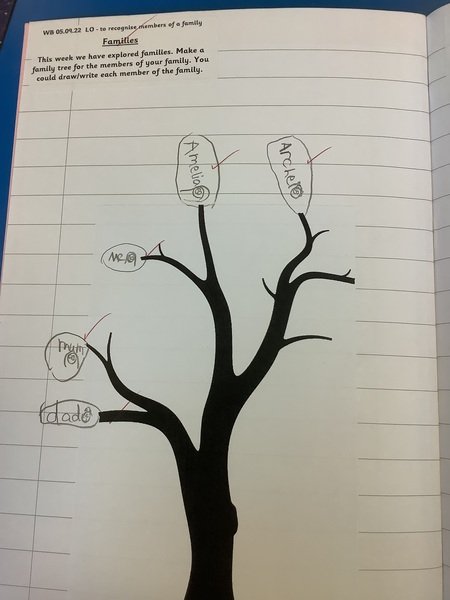 WB 05.09.22 LO - to recognise members of a family
Families
This week we have explored families. Make a
family tree for the members of your family. You
could draw/write each member of the family.
Amelia
Archer
me
mum
dad